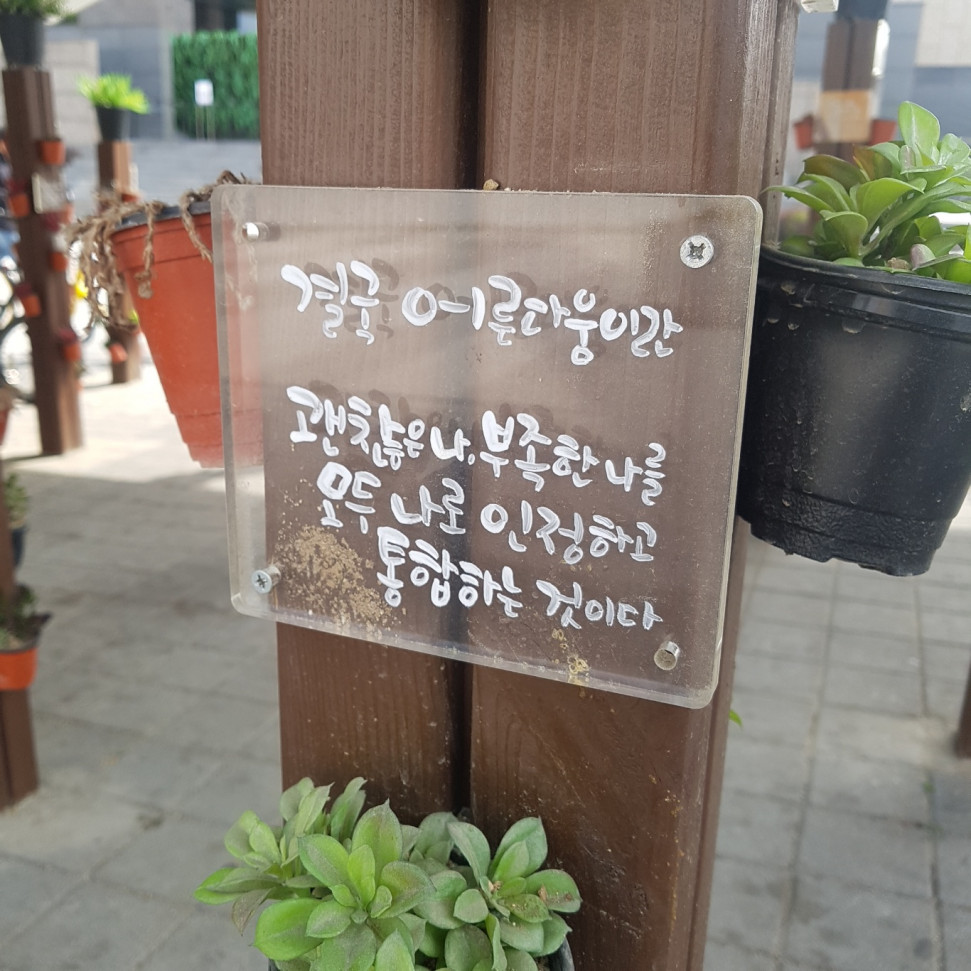 결국 어른다움이란
괜찮은 나, 부족한 나를
모두 나로 인정하고
통합하는 것이다